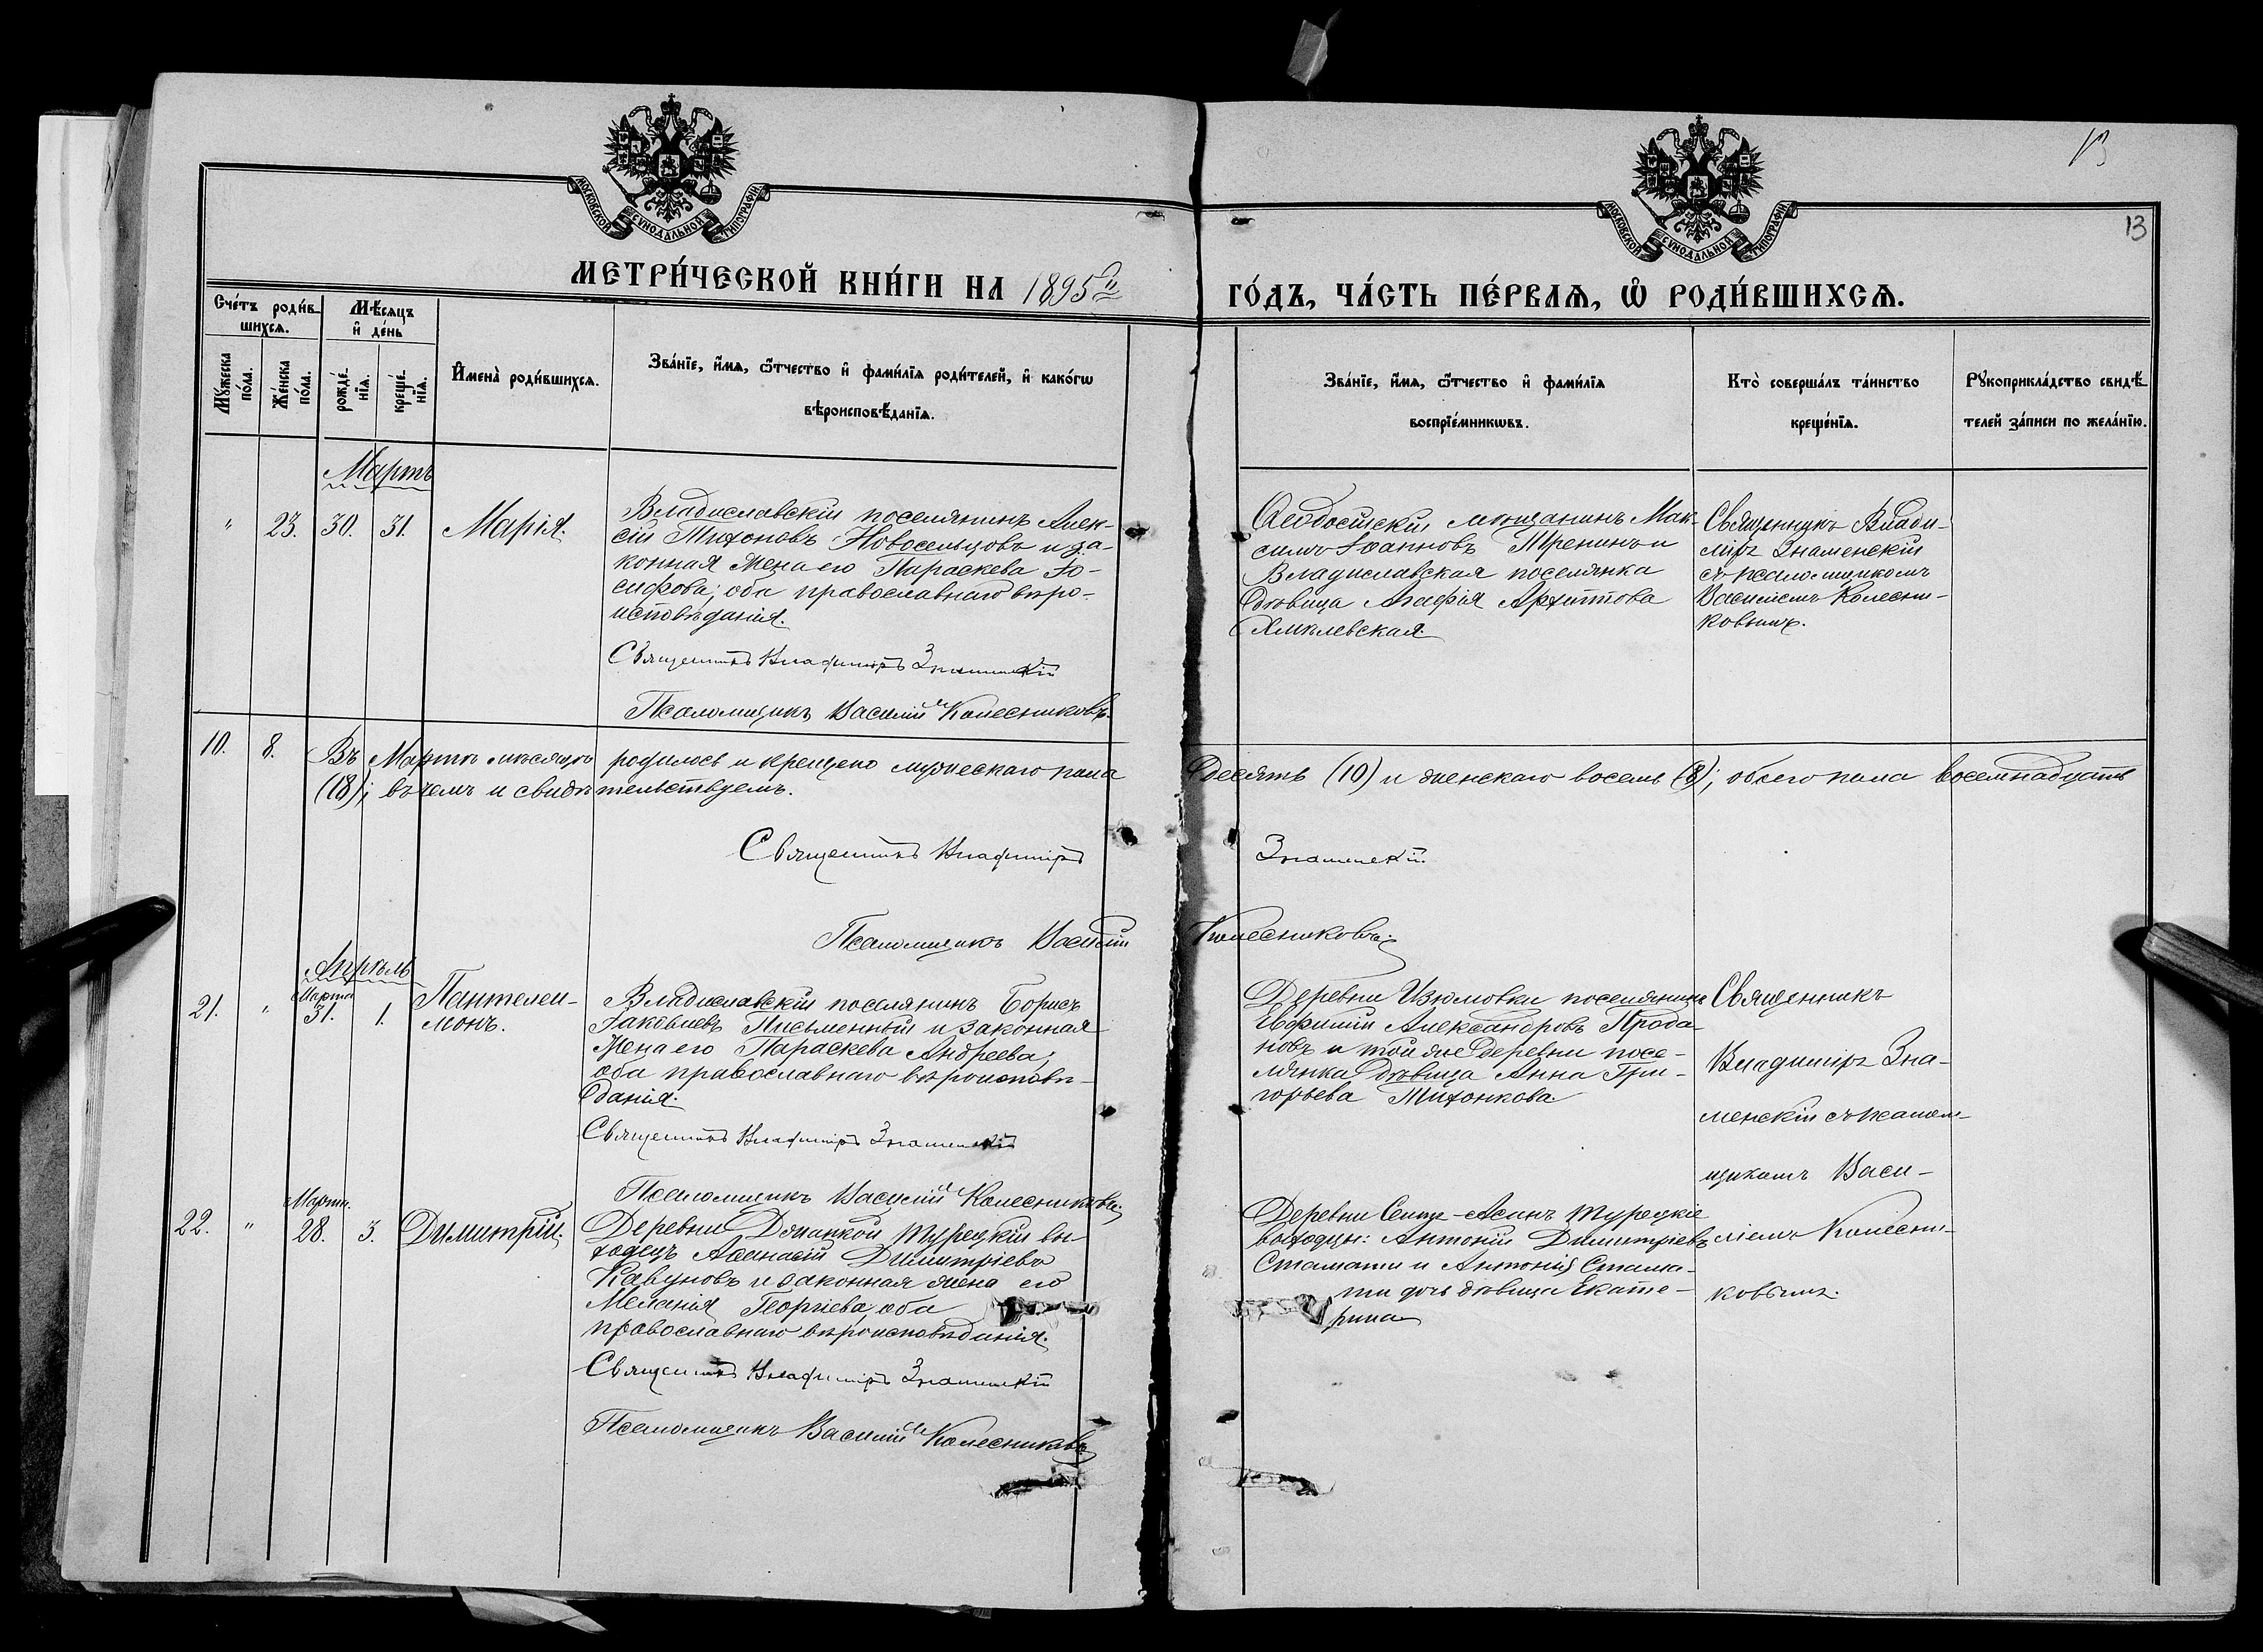 13
МОСКОВСКОЙ СУНОДАЛЬНОЙ ТИПОГРАФІИ
МОСКОВСКОЙ СУНОДАЛЬНОЙ ТИПОГРАФІИ
13
МЕТРИ́ЧЕСКОЙ КНИ́ГИ НА 1895й
ГО́ДЪ, ЧА́СТЬ ПЕ́РВАѦ, Ѽ РОДИ́ВШИХСѦ.
Сче́тъ роди́в-
шихсѧ.
Мꙋ́жеска
по́ла.
Же́нска
по́ла.
Мѣ́сѧцъ
и҆ де́нь
рожде́-
нїѧ.
креще́-
нїѧ.
И҆мена̀ роди́вшихсѧ.
Зва́нїе, и҆́мѧ, ѻ҆́тчество и҆ фами́лїѧ роди́телей, и҆ како́гѡ
вѣроисповѣ́данїѧ.
Зва́нїе, и҆́мѧ, ѻ҆́тчество и҆ фами́лїѧ
воспрїе́мникѡвъ.
Кто̀ соверша́лъ та́инство
креще́нїѧ.
Рꙋкоприкла́дство свидѣ́-
телей за́писи по жела́нїю.
Мартъ
" 23. 30. 31. Марія.
Владиславскій поселянинъ Алек-
сій Тихоновъ Новосельцовъ и за-
конная жена его Параскева Іо-
сифова; оба православнаго вѣро-
исповѣданія.
Священникъ Владиміръ Знаменскій
Псаломщикъ Василій Колесниковъ.
Ѳеодосійскій мѣщанинъ Мак-
симъ Іоанновъ Тренинъ и
Владиславская поселянка
дѣвица Агафія Архиппова
Хмѣлевская.
Священникъ Влади-
міръ Знаменскій
съ псаломщикомъ
Василіемъ Колесни-
ковымъ.
10. 8. Въ Мартѣ мѣсяцѣ родилось и крещено мужескаго пола десять (10) и женскаго восемь (8); обоего пола восемнадцать
(18); въ чемъ и свидѣтельствуемъ.
Священникъ Владиміръ Знаменскій
Псаломщикъ Василій Колесниковъ.
Апрѣль
21. " Марта 31. 1. Пантелеи-
монъ.
Владиславскій поселянинъ Борисъ
Іаковлевъ Письменный и законная
жена его Параскева Андреева;
оба православнаго вѣроисповѣ-
данія.
Священникъ Владиміръ Знаменскій
Псаломщикъ Василій Колесниковъ.
Деревни Изюмовки поселянинъ
Евфимій Александровъ Прода-
новъ и той же деревни посе-
лянка дѣвица Анна Гри-
горьева Тихонкова.
Священникъ
Владиміръ Зна-
менскій съ псалом-
щикомъ Васи-
ліемъ Колесни-
ковымъ.
22. " Марта. 28. 3. Димитрій.
Деревни Джанкой турецкій вы-
ходецъ Аѳанасій Димитріевъ
Кавуновъ и законная жена его
Меланія Георгіева, оба
православнаго вѣроисповѣданія.
Священникъ Владиміръ Знаменскій
Псаломщикъ Василій Колесниковъ
Деревни Асанъ турецкіе
выходцы: Антоній Димитріевъ
Стамати и Антонія Стама-
ти дочь дѣвица Екате-
рина